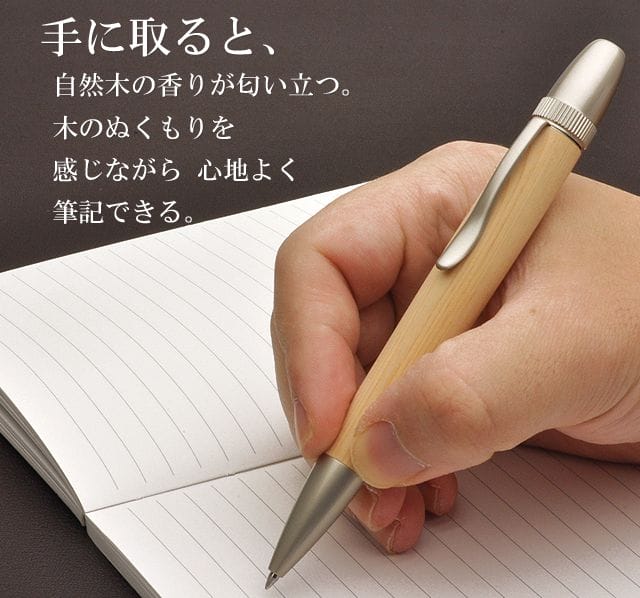 手に取ると、
自然木の香りが匂い立つ。
木のぬくもりを
感じながら 心地よく
筆記できる。